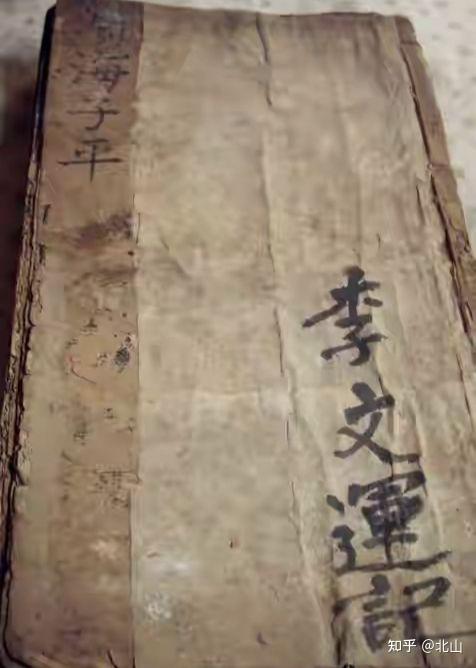 海子平
李文運記
知乎 @北山